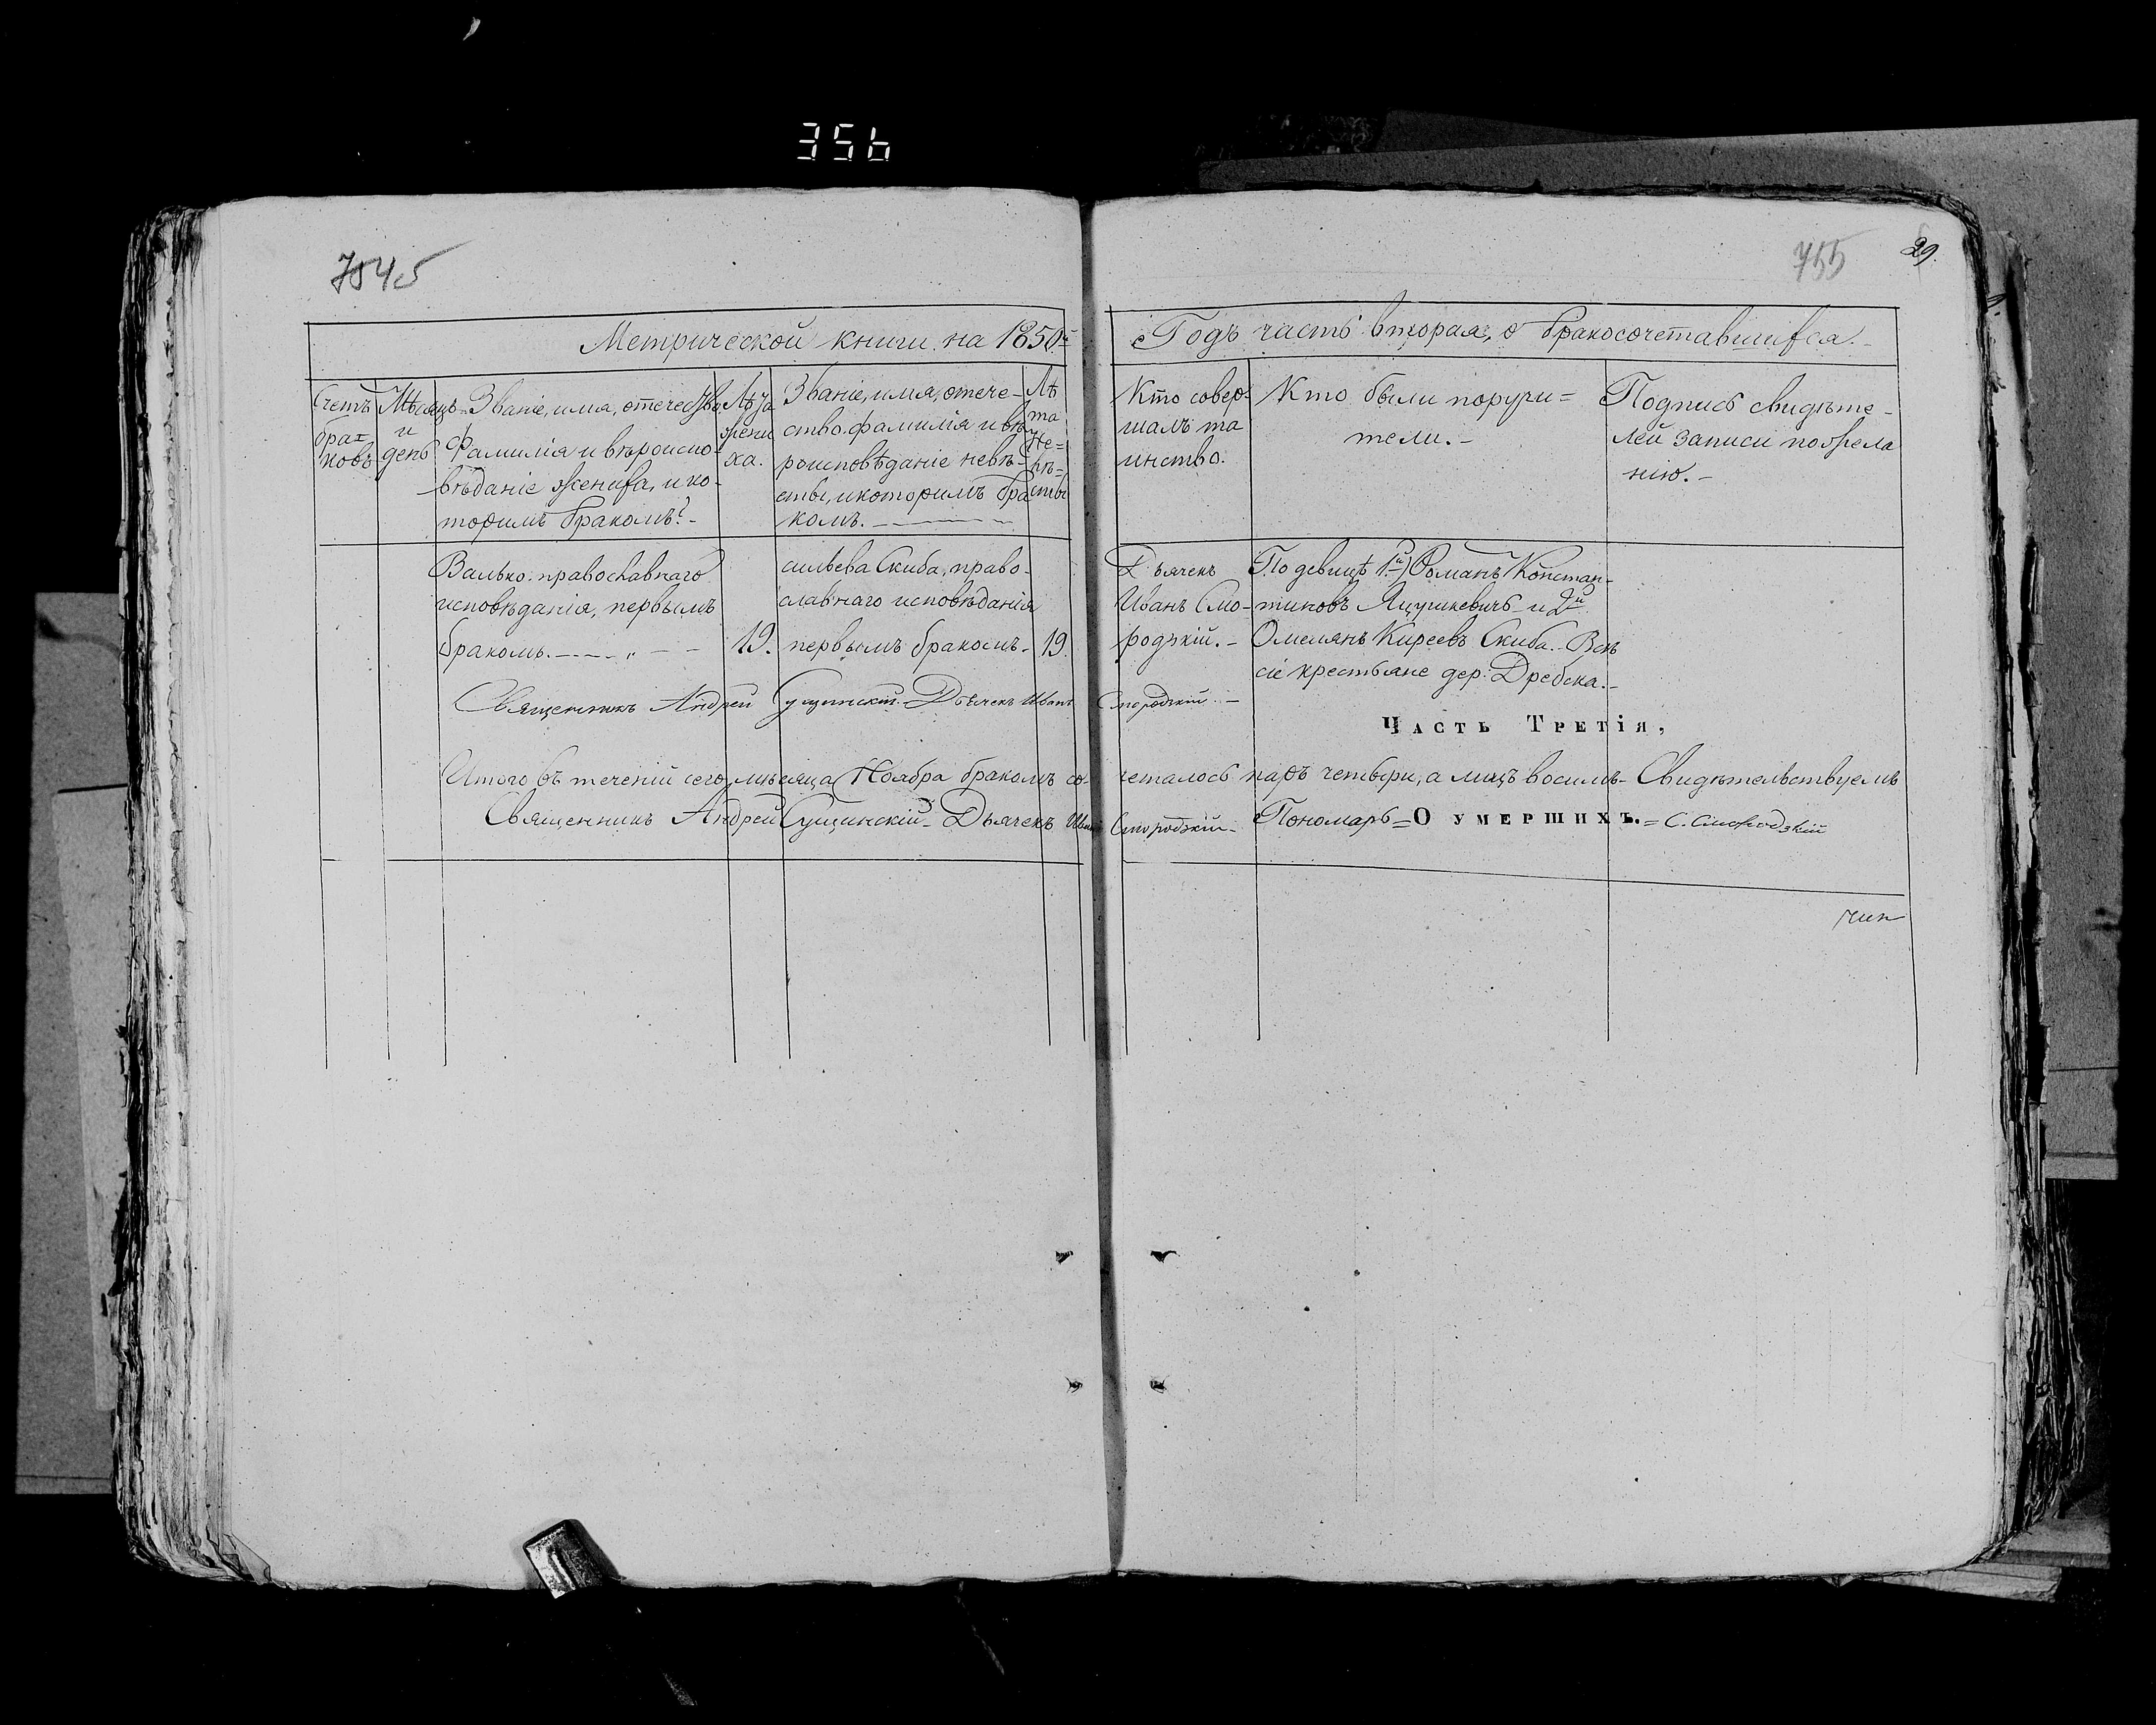 356
7545
755
29.
Метрической книги на 1850й
Годъ часть вторая, о бракосочетавшихся.
Счетъ браковъ
Мѣсяцъ и день
Званіе, имя, отечество,
фамилія и вѣроиспо-
вѣданіе жениха, и ко-
торимъ бракомъ?-
Лѣта
жени
ха.
Званіе, имя, отече-
ство, фамилія и вѣ
роисповѣданіе невѣ-
сты, и которимъ бра
комъ.
Лѣ
та
не=
вѣ=
сты
Кто совер-
шалъ та
инство.
Кто были поручи=
тели.-
Подпись свидѣте-
лей записи по жела
нію.-
Валько. православнаго
исповѣданія, первымъ
бракомъ.
19.
сильева Скиба, право-
славнаго исповѣданія
первымъ бракомъ-
19.
Дьячекъ
Иванъ Смо-
родзкій.-
По девицѣ 1й) Романъ Констан-
тиновъ Яцушкевичъ и 2й
Омелянъ Киреевъ Скиба. Всѣ
сіе крестьяне дер. Дребска.-
Священникъ Андрей Сущинскій. Дьячекъ Иванъ Смородзкій.-
Часть Третія,
Итого въ теченій сего мѣсяца Ноября бракомъ со-
четалось паръ четыри, а лицъ восимъ- Свидѣтельствуемъ
Священникъ Андрей Сущинскій- Дьячекъ Иванъ Смородзкій- Пономарь= = С. Смородзкій
О умершихъ.